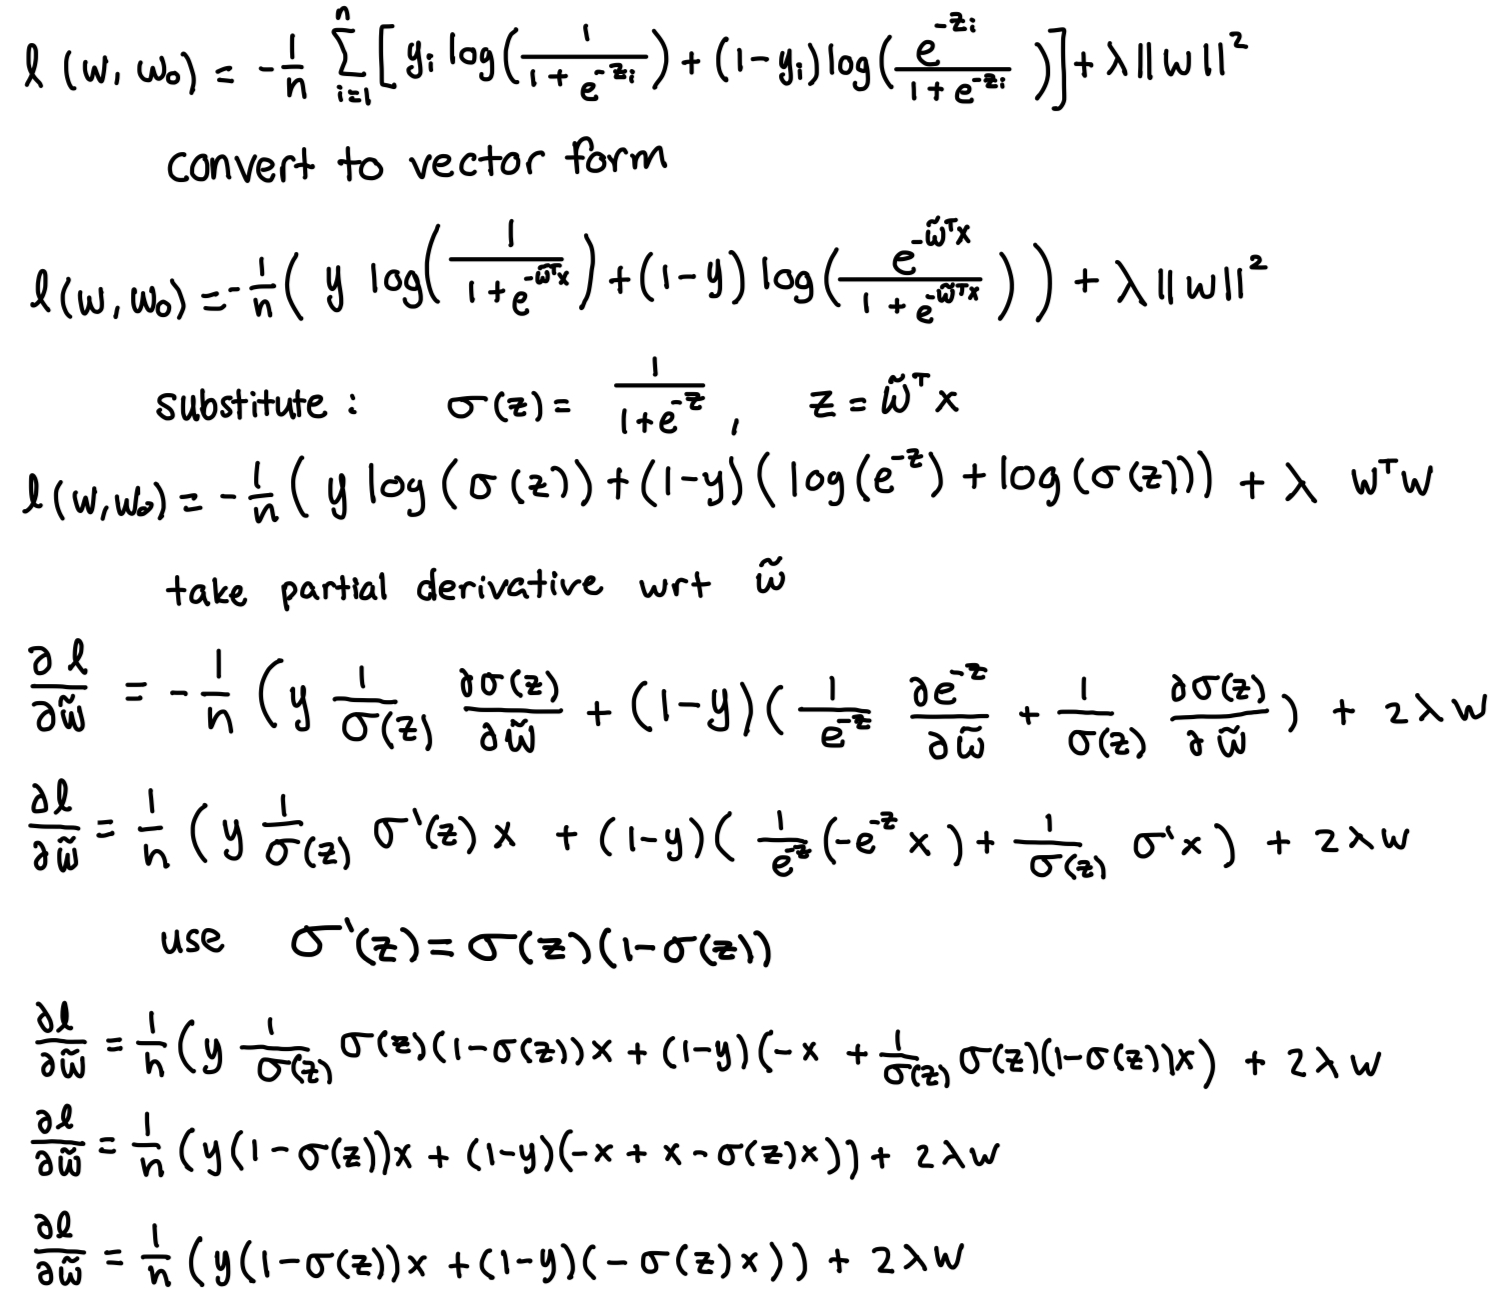 l(w, w₀) = -1/n Σ_{i=1}^{n} [y_i log(1/(1 + e^{-z_i})) + (1-y_i) log(e^{-z_i}/(1 + e^{-z_i}))] + λ||w||²
convert to vector form
l(w, w₀) = -1/n (y log(1/(1 + e^{-w̃ᵀx})) + (1-y) log(e^{-w̃ᵀx}/(1 + e^{-w̃ᵀx}))) + λ||w||²
substitute: σ(z) = 1/(1+e^{-z}), z = w̃ᵀx
l(w, w₀) = -1/n (y log(σ(z)) + (1-y)(log(e^{-z}) + log(σ(z))) + λ wᵀw
take partial derivative wrt w̃
∂l/∂w̃ = -1/n (y 1/σ(z) ∂σ(z)/∂w̃ + (1-y)(1/e^{-z} ∂e^{-z}/∂w̃ + 1/σ(z) ∂σ(z)/∂w̃) + 2λw
∂l/∂w̃ = 1/n (y 1/σ(z) σ'(z) x + (1-y)(1/e^{-z} (-e^{-z} x) + 1/σ(z) σ'x) + 2λw
use σ'(z) = σ(z)(1-σ(z))
∂l/∂w̃ = 1/n (y 1/σ(z) σ(z)(1-σ(z))x + (1-y)(-x + 1/σ(z) σ(z)(1-σ(z))x) + 2λw
∂l/∂w̃ = 1/n (y(1-σ(z))x + (1-y)(-x + x - σ(z)x)) + 2λw
∂l/∂w̃ = 1/n (y(1-σ(z))x + (1-y)(-σ(z)x)) + 2λw